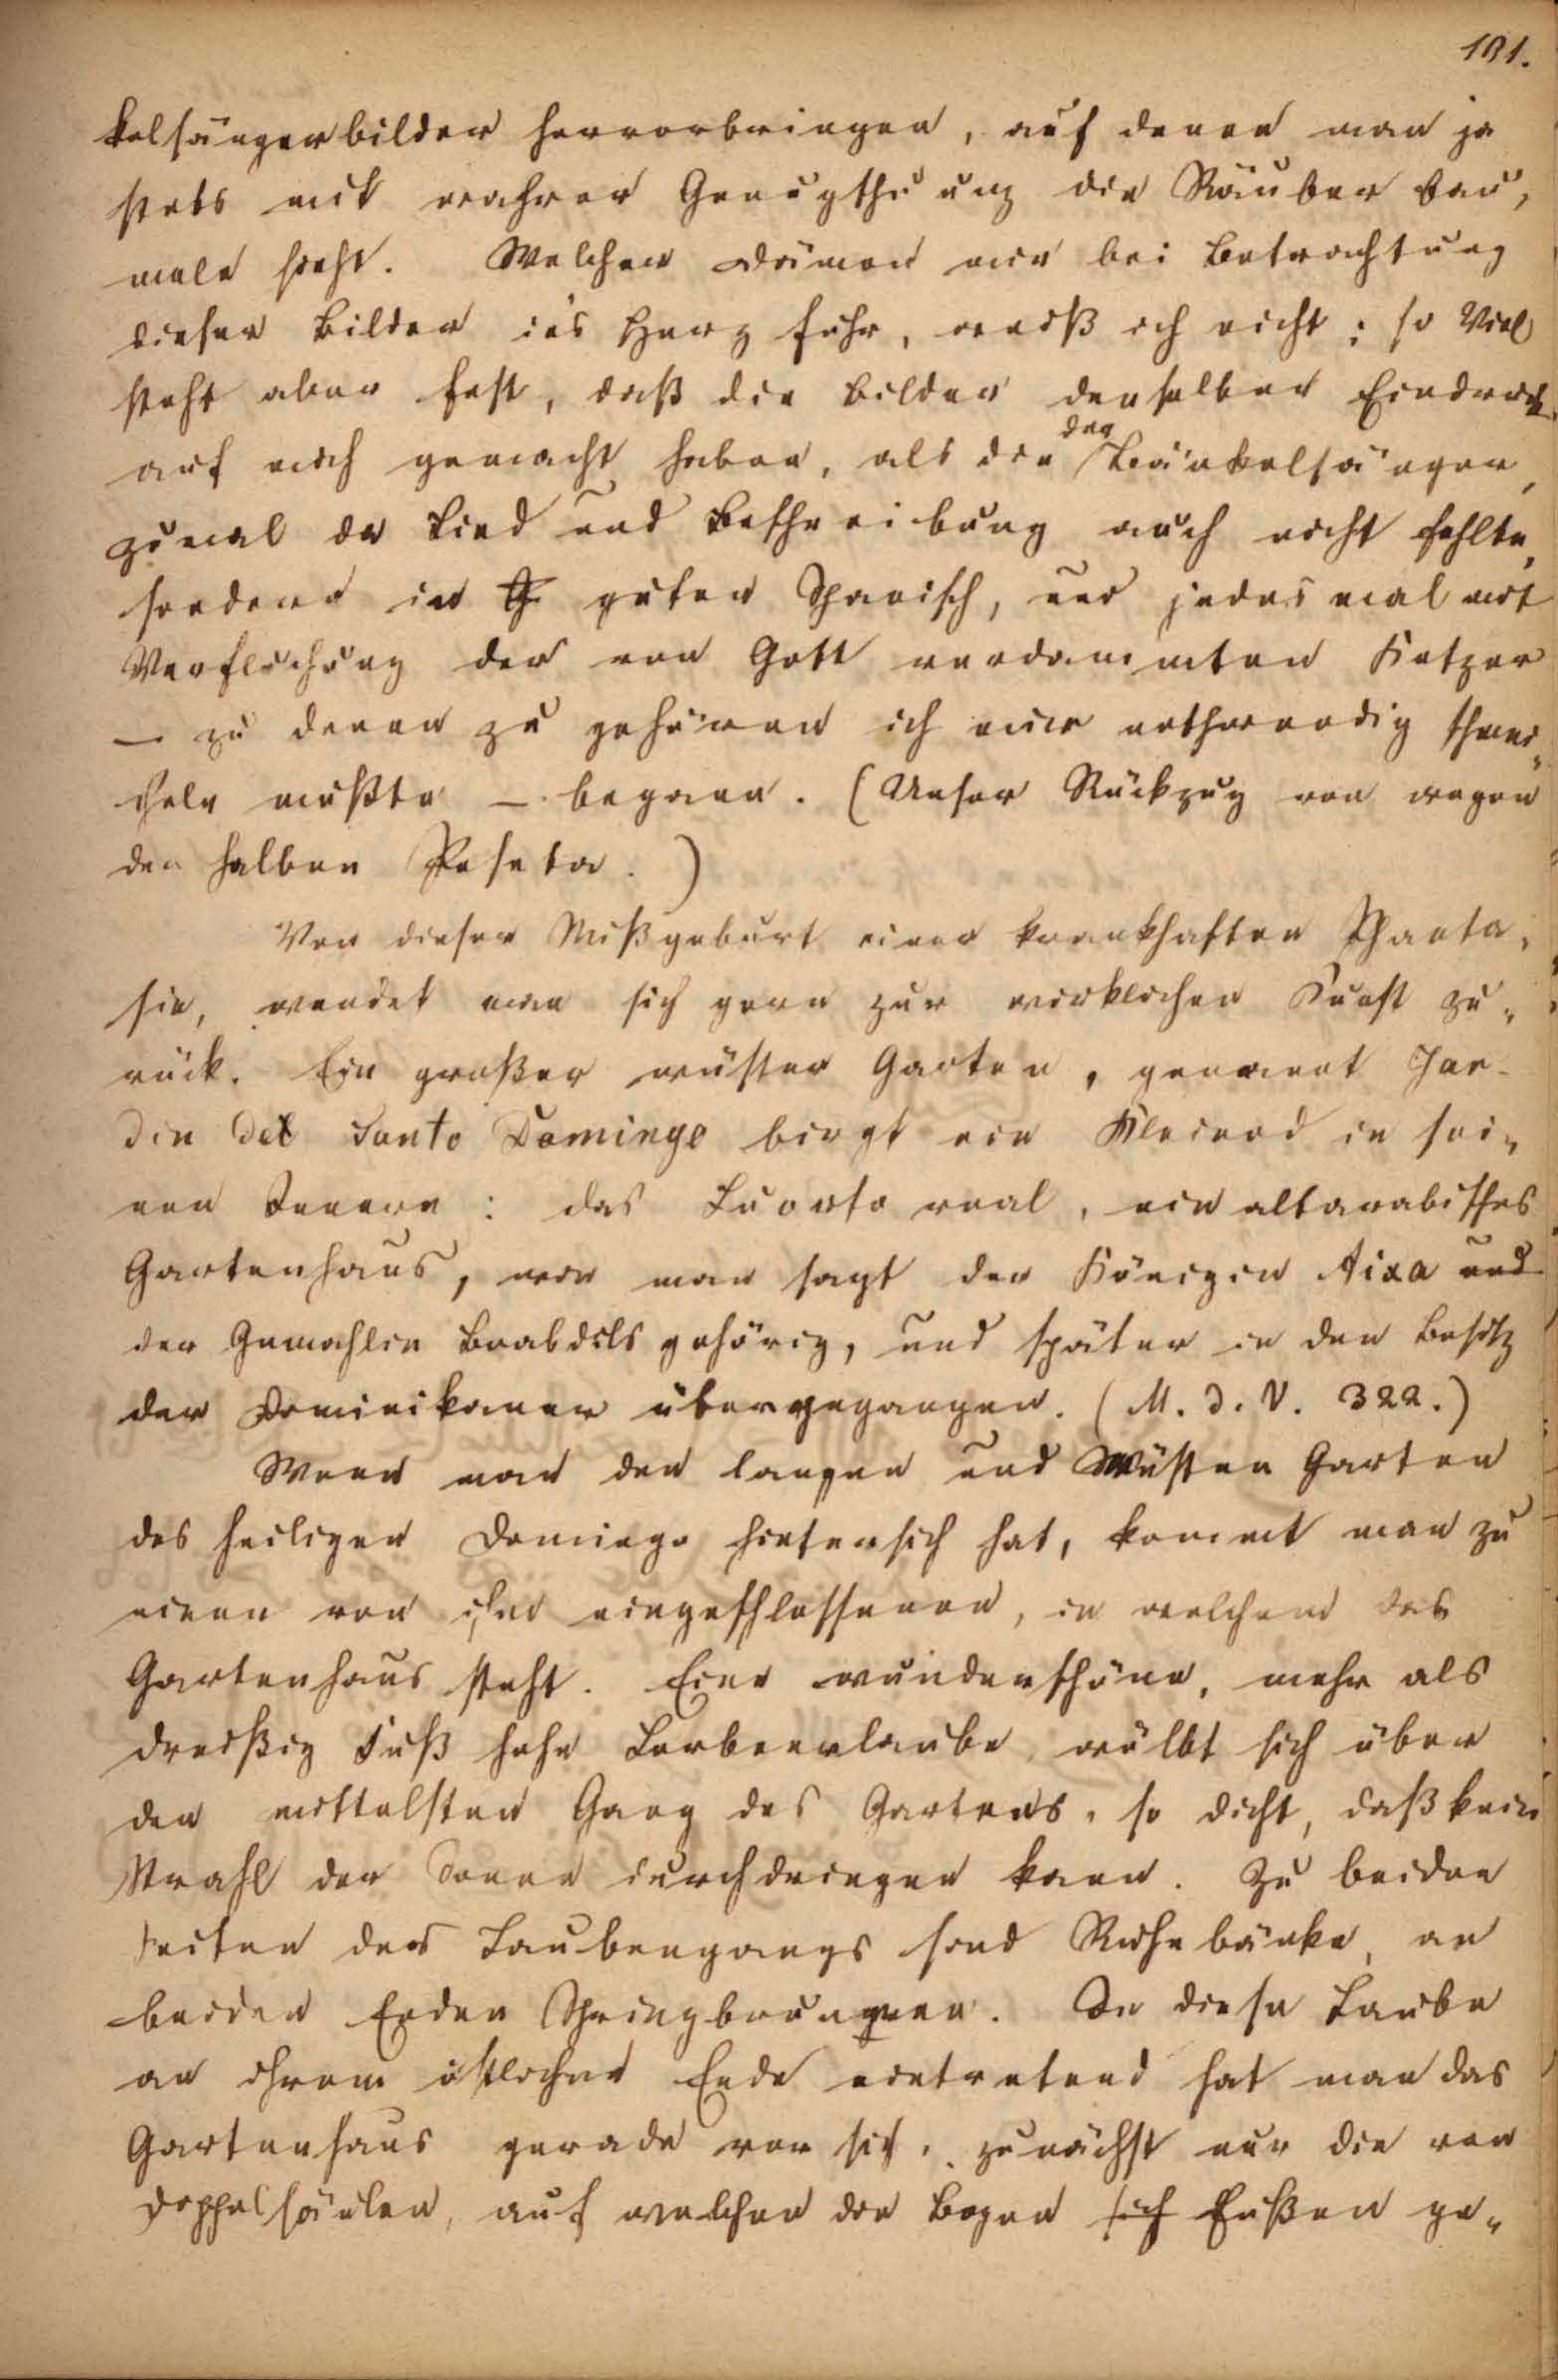 191.
kelsängerbilder hervorbringen, auf denen man ja
stets mit wahrer Genugthuung die Räuber bau,
meln sieht. Welcher Dämon mir bei Betrachtung
dieser Bilder in's Herz fuhr, weiß ich nicht; so Viel
steht aber fest, daß die Bilder denselben Eindruck
auf mich gemacht haben, als die der Bänkelsänger,
zumal da Lied und Beschreibung auch nicht fehlte,
sondern in guten Spanisch, und jedes mal mit
Verfluchung der von Gott verdammten Ketzer
— zu denen zu gehören ich mir nothwendig schmei„
cheln mußte — begann. (Unser Rückzug von wegen
der halben Peseta.)
Von dieser Mißgeburt einer krankhaften Phanta,
sie, wendet man sich gern zur wirklichen Kunst zu„
rück. Ein großer wüster Garten, genannt Jar-
din del Santo Domingo birgt ein Kleinod in sei„
nen Innern: das Cuarto real, ein altarabisches
Gartenhaus, wie man sagt der Königin Aixa und
der Gemahlin Boabdils gehörig, und später in den Besitz
der Dominikaner übergegangen. (M. d. V. 322.)
Wenn man den langen und Wüsten Garten
des heiligen Domingo hintersich hat, kommt man zu
einen von ihm eingeschlossenen, in welchem das
Gartenhaus steht. Eine wunderschöne, mehr als
dreißig Fuß hohe Lorbeerlaube, wölbt sich über
den mittelsten Gang des Gartens, so dicht, daß kein
Strahl der Sonne durchdringen kann. Zu beiden
Seiten des Laubengangs sind Ruhebänke, an
beiden Enden Springbrunnen. In diese Laube
an ihrem östlichen Ende eintretend hat man das
Gartenhaus gerade vor sich, zunächst nur die von
Doppelsäulen, auf welchen die Bogen sich Fußen ge„